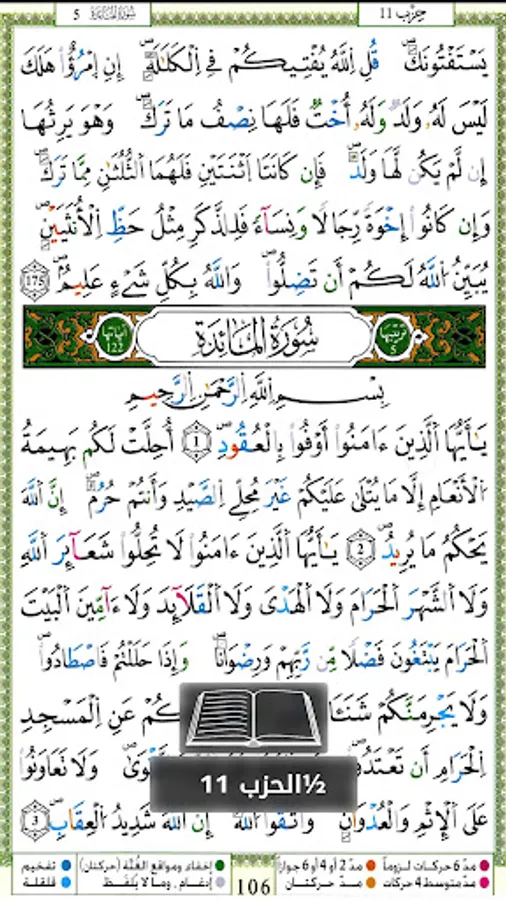 حِزْب 11
سُورَةُ المَائِدَة 5
يَسْتَفْتُونَكَ قُلِ اِللَّهُ يُفْتِيكُمْ فِي اِلْكَلَٰلَةِ إِنِ اِمْرُؤٌاْ هَلَكَ
لَيْسَ لَهُۥ وَلَدٌ وَلَهُۥ أُخْتٌ فَلَهَا نِصْفُ مَا تَرَكَ وَهْوَ يَرِثُهَا
إِن لَّمْ يَكُن لَّهَا وَلَدٌ فَإِن كَانَتَا اَثْنَتَيْنِ فَلَهُمَا اَلثُّلُثَٰنِ مِمَّا تَرَكَ
وَإِن كَانُوٓاْ إِخْوَةً رِّجَالًا وَنِسَآءً فَلِلذَّكَرِ مِثْلُ حَظِّ اِلْأُنثَيَيْنِ
يُبَيِّنُ اُللَّهُ لَكُمْ أَن تَضِلُّواْ وَاللَّهُ بِكُلِّ شَيْءٍ عَلِيمٌ 175
ترتيبها 5 سُورَةُ المَائِدَة آياتها 122
بِسْمِ اِللَّهِ اِلرَّحْمَٰنِ اِلرَّحِيمِ
يَٰٓأَيُّهَا اَلَّذِينَ ءَامَنُوٓاْ أَوْفُواْ بِالْعُقُودِ 1 أُحِلَّتْ لَكُم بَهِيمَةُ
اُلْأَنْعَٰمِ إِلَّا مَا يُتْلَىٰ عَلَيْكُمْ غَيْرَ مُحِلِّي اِلصَّيْدِ وَأَنتُمْ حُرُمٌ إِنَّ اَللَّهَ
يَحْكُمُ مَا يُرِيدُ 2 يَٰٓأَيُّهَا اَلَّذِينَ ءَامَنُواْ لَا تُحِلُّواْ شَعَٰٓئِرَ اَللَّهِ
وَلَا اَلشَّهْرَ اَلْحَرَامَ وَلَا اَلْهَدْيَ وَلَا اَلْقَلَٰٓئِدَ وَلَآ ءَآمِّينَ اَلْبَيْتَ
اَلْحَرَامَ يَبْتَغُونَ فَضْلًا مِّن رَّبِّهِمْ وَرِضْوَٰنًا وَإِذَا حَلَلْتُمْ فَاصْطَادُواْ
وَلَا يَجْرِمَنَّكُمْ شَنَـَٔا كُمْ عَنِ اِلْمَسْجِدِ
اِلْحَرَامِ أَن تَعْتَدُواْ وَلَا تَعَاوَنُواْ
عَلَى اَلْإِثْمِ وَالْعُدْوَٰنِ وَاتَّقُواْ اُللَّهَ إِنَّ اَللَّهَ شَدِيدُ اُلْعِقَابِ 3
½الحزب 11
مدّ 6 حركات لزوماً مدّ 2 أو 4 أو 6 جوازاً إخفاء ومواقع الغُنَّة (حركتان) تفخيم
مدّ متوسط 4 حركات مدّ حركتان إدغام، وما لا يُلفَظ قلقلة
106